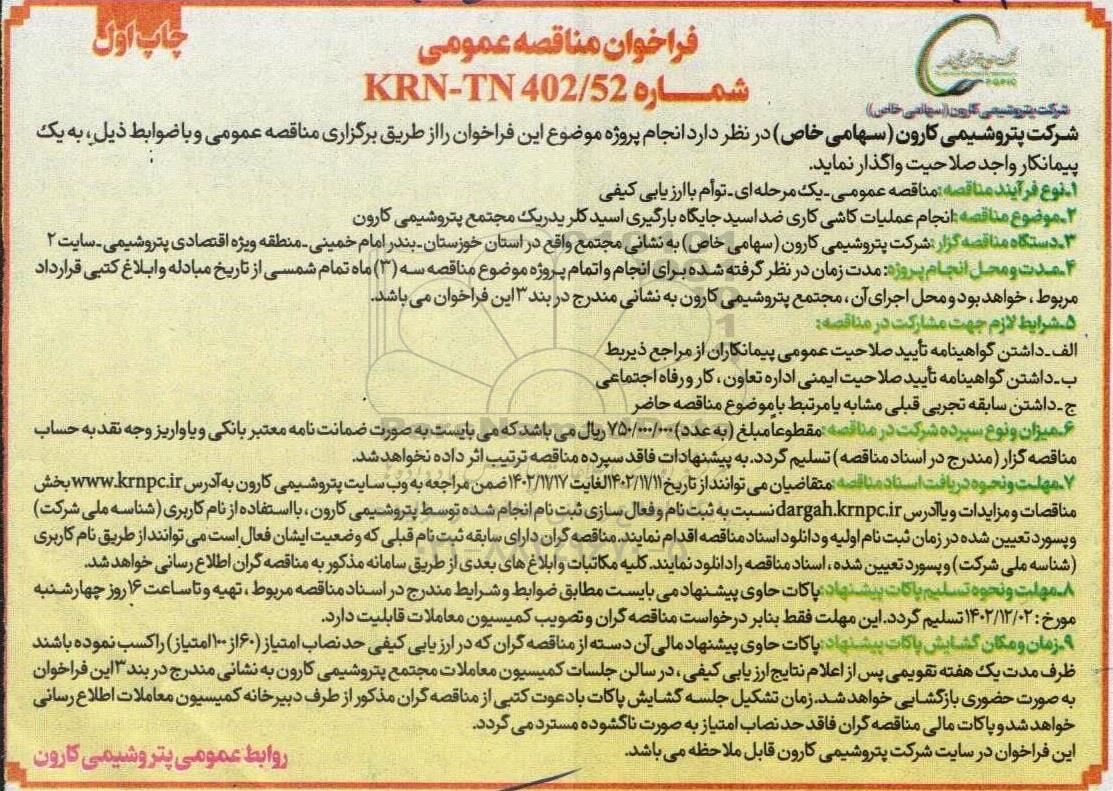 چاپ اول
فراخوان مناقصه عمومی
شماره KRN-TN 402/52
PGPIC
شرکت پتروشیمی کارون (سهامی خاص)
شرکت پتروشیمی کارون (سهامی خاص) در نظر دارد انجام پروژه موضوع این فراخوان را از طریق برگزاری مناقصه عمومی و با ضوابط ذیل، به یک
پیمانکار واجد صلاحیت واگذار نماید.
۱ـ نوع فرآیند مناقصه: مناقصه عمومی ـ یک مرحله ای ـ توأم با ارزیابی کیفی
۲ـ موضوع مناقصه: انجام عملیات کاشی کاری ضد اسید جایگاه بارگیری اسید کلریدریک مجتمع پتروشیمی کارون
۳ـ دستگاه مناقصه گزار: شرکت پتروشیمی کارون (سهامی خاص) به نشانی مجتمع واقع در استان خوزستان ـ بندر امام خمینی ـ منطقه ویژه اقتصادی پتروشیمی ـ سایت ۲
۴ـ مدت و محل انجام پروژه: مدت زمان در نظر گرفته شده برای انجام و اتمام پروژه موضوع مناقصه سه (۳) ماه تمام شمسی از تاریخ مبادله و ابلاغ کتبی قرارداد
مربوط، خواهد بود و محل اجرای آن، مجتمع پتروشیمی کارون به نشانی مندرج در بند ۳ این فراخوان می باشد.
۵ـ شرایط لازم جهت مشارکت در مناقصه:
الف ـ داشتن گواهینامه تأیید صلاحیت عمومی پیمانکاران از مراجع ذیربط
ب ـ داشتن گواهینامه تأیید صلاحیت ایمنی اداره تعاون، کار و رفاه اجتماعی
ج ـ داشتن سابقه تجربی قبلی مشابه یا مرتبط با موضوع مناقصه حاضر
۶ـ میزان و نوع سپرده شرکت در مناقصه: مقطوعاً مبلغ (به عدد) ۷۵۰/۰۰۰/۰۰۰ ریال می باشد که می بایست به صورت ضمانت نامه معتبر بانکی و یا واریز وجه نقد به حساب
مناقصه گزار (مندرج در اسناد مناقصه) تسلیم گردد. به پیشنهادات فاقد سپرده مناقصه ترتیب اثر داده نخواهد شد.
۷ـ مهلت و نحوه دریافت اسناد مناقصه: متقاضیان می توانند از تاریخ ۱۴۰۲/۱۱/۱۱ لغایت ۱۴۰۲/۱۱/۱۷ ضمن مراجعه به وب سایت پتروشیمی کارون به آدرس www.krnpc.ir بخش
مناقصات و مزایدات و یا آدرس dargah.krnpc.ir نسبت به ثبت نام و فعال سازی ثبت نام انجام شده توسط پتروشیمی کارون، با استفاده از نام کاربری (شناسه ملی شرکت)
و پسورد تعیین شده در زمان ثبت نام اولیه و دانلود اسناد مناقصه اقدام نمایند. مناقصه گران دارای سابقه ثبت نام قبلی که وضعیت ایشان فعال است می توانند از طریق نام کاربری
(شناسه ملی شرکت) و پسورد تعیین شده، اسناد مناقصه را دانلود نمایند. کلیه مکاتبات و ابلاغ های بعدی از طریق سامانه مذکور به مناقصه گران اطلاع رسانی خواهد شد.
۸ـ مهلت و نحوه تسلیم پاکات پیشنهاد: پاکات حاوی پیشنهاد می بایست مطابق ضوابط و شرایط مندرج در اسناد مناقصه مربوط، تهیه و تا ساعت ۱۶ روز چهارشنبه
مورخ: ۱۴۰۲/۱۲/۰۲ تسلیم گردد. این مهلت فقط بنابر درخواست مناقصه گران و تصویب کمیسیون معاملات قابلیت دارد.
۹ـ زمان و مکان گشایش پاکات پیشنهاد: پاکات حاوی پیشنهاد مالی آن دسته از مناقصه گران که در ارزیابی کیفی حد نصاب امتیاز (۶۰ از ۱۰۰ امتیاز) را کسب نموده باشند
ظرف مدت یک هفته تقویمی پس از اعلام نتایج ارزیابی کیفی، در سالن جلسات کمیسیون معاملات مجتمع پتروشیمی کارون به نشانی مندرج در بند ۳ این فراخوان
به صورت حضوری بازگشایی خواهد شد. زمان تشکیل جلسه گشایش پاکات با دعوت کتبی از مناقصه گران مذکور از طرف دبیرخانه کمیسیون معاملات اطلاع رسانی
خواهد شد و پاکات مالی مناقصه گران فاقد حد نصاب امتیاز به صورت ناگشوده مسترد می گردد.
این فراخوان در سایت شرکت پتروشیمی کارون قابل ملاحظه می باشد.
روابط عمومی پتروشیمی کارون